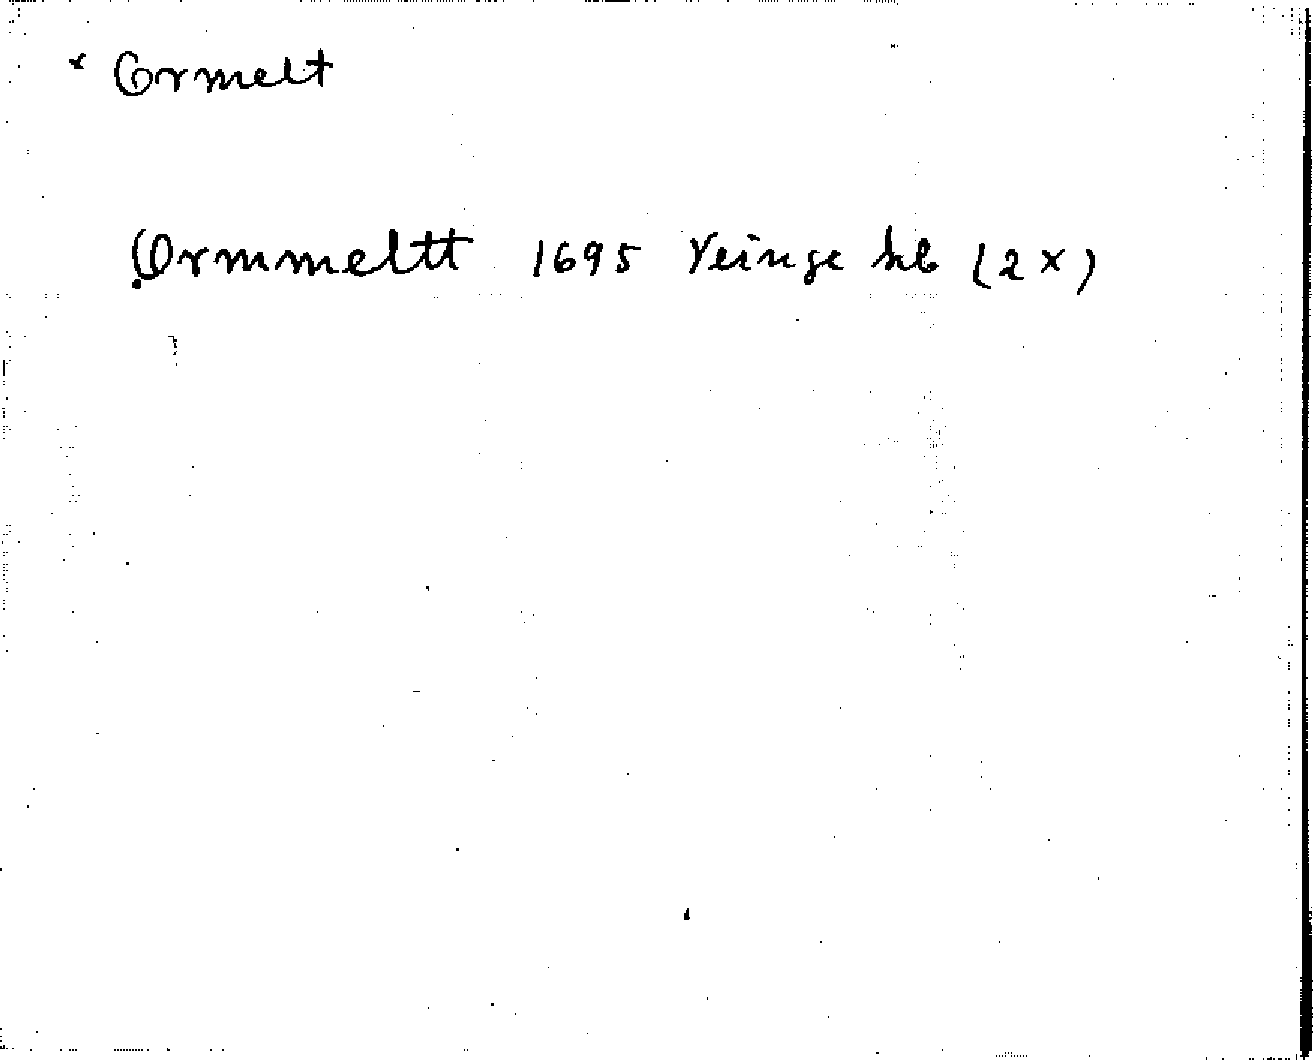 * Ormelt
Ormmeltt 1695 Veinge hb (2x)